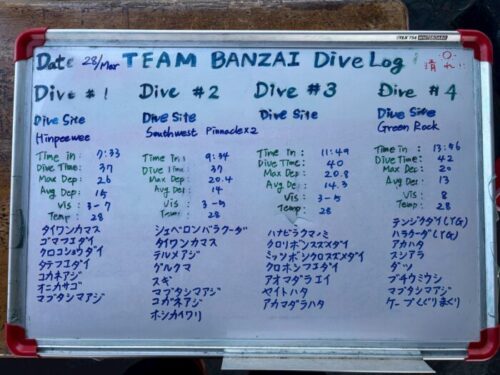 Date 28/Mar TEAM BANZAI Dive Log 晴れ
Dive #1
Dive Site
Hinpeewee
Time in: 7:33
Dive Time: 37
Max Dep: 26
Avg Dep: 15
Vis: 3-7
Temp: 28
タイワンカマス
ゴマフエダイ
クロコショウダイ
タテフエダイ
コガネアジ
オニカサゴ
マブタシマアジ
Dive #2
Dive Site
Southwest Pinnacle×2
Time in: 9:34
Dive Time: 37
Max Dep: 20.4
Avg Dep: 14
Vis: 3-5
Temp: 28
シェベロンバラクーダ
タイワンカマス
テルメアジ
グルクマ
スギ
マブタシマアジ
コガネアジ
ホシカイワリ
Dive #3
Dive Site
Time in: 11:49
Dive Time: 40
Max Dep: 20.8
Avg Dep: 14.3
Vis: 3-5
Temp: 28
ハナビラクマノミ
クロリボンスズメダイ
ミツボシクロスズメダイ
クロホシフエダイ
アオマダラエイ
ヤイトハタ
アカマダラハタ
Dive #4
Dive Site
Green Rock
Time in: 13:56
Dive Time: 42
Max Dep: 20
Avg Dep: 13
Vis: 8
Temp: 28
テンジクダイ(YG)
バラクーダ(YG)
アカハタ
スジアラ
ダツ
ブチウミウシ
マブタシマアジ
ケーブくぐりまくり